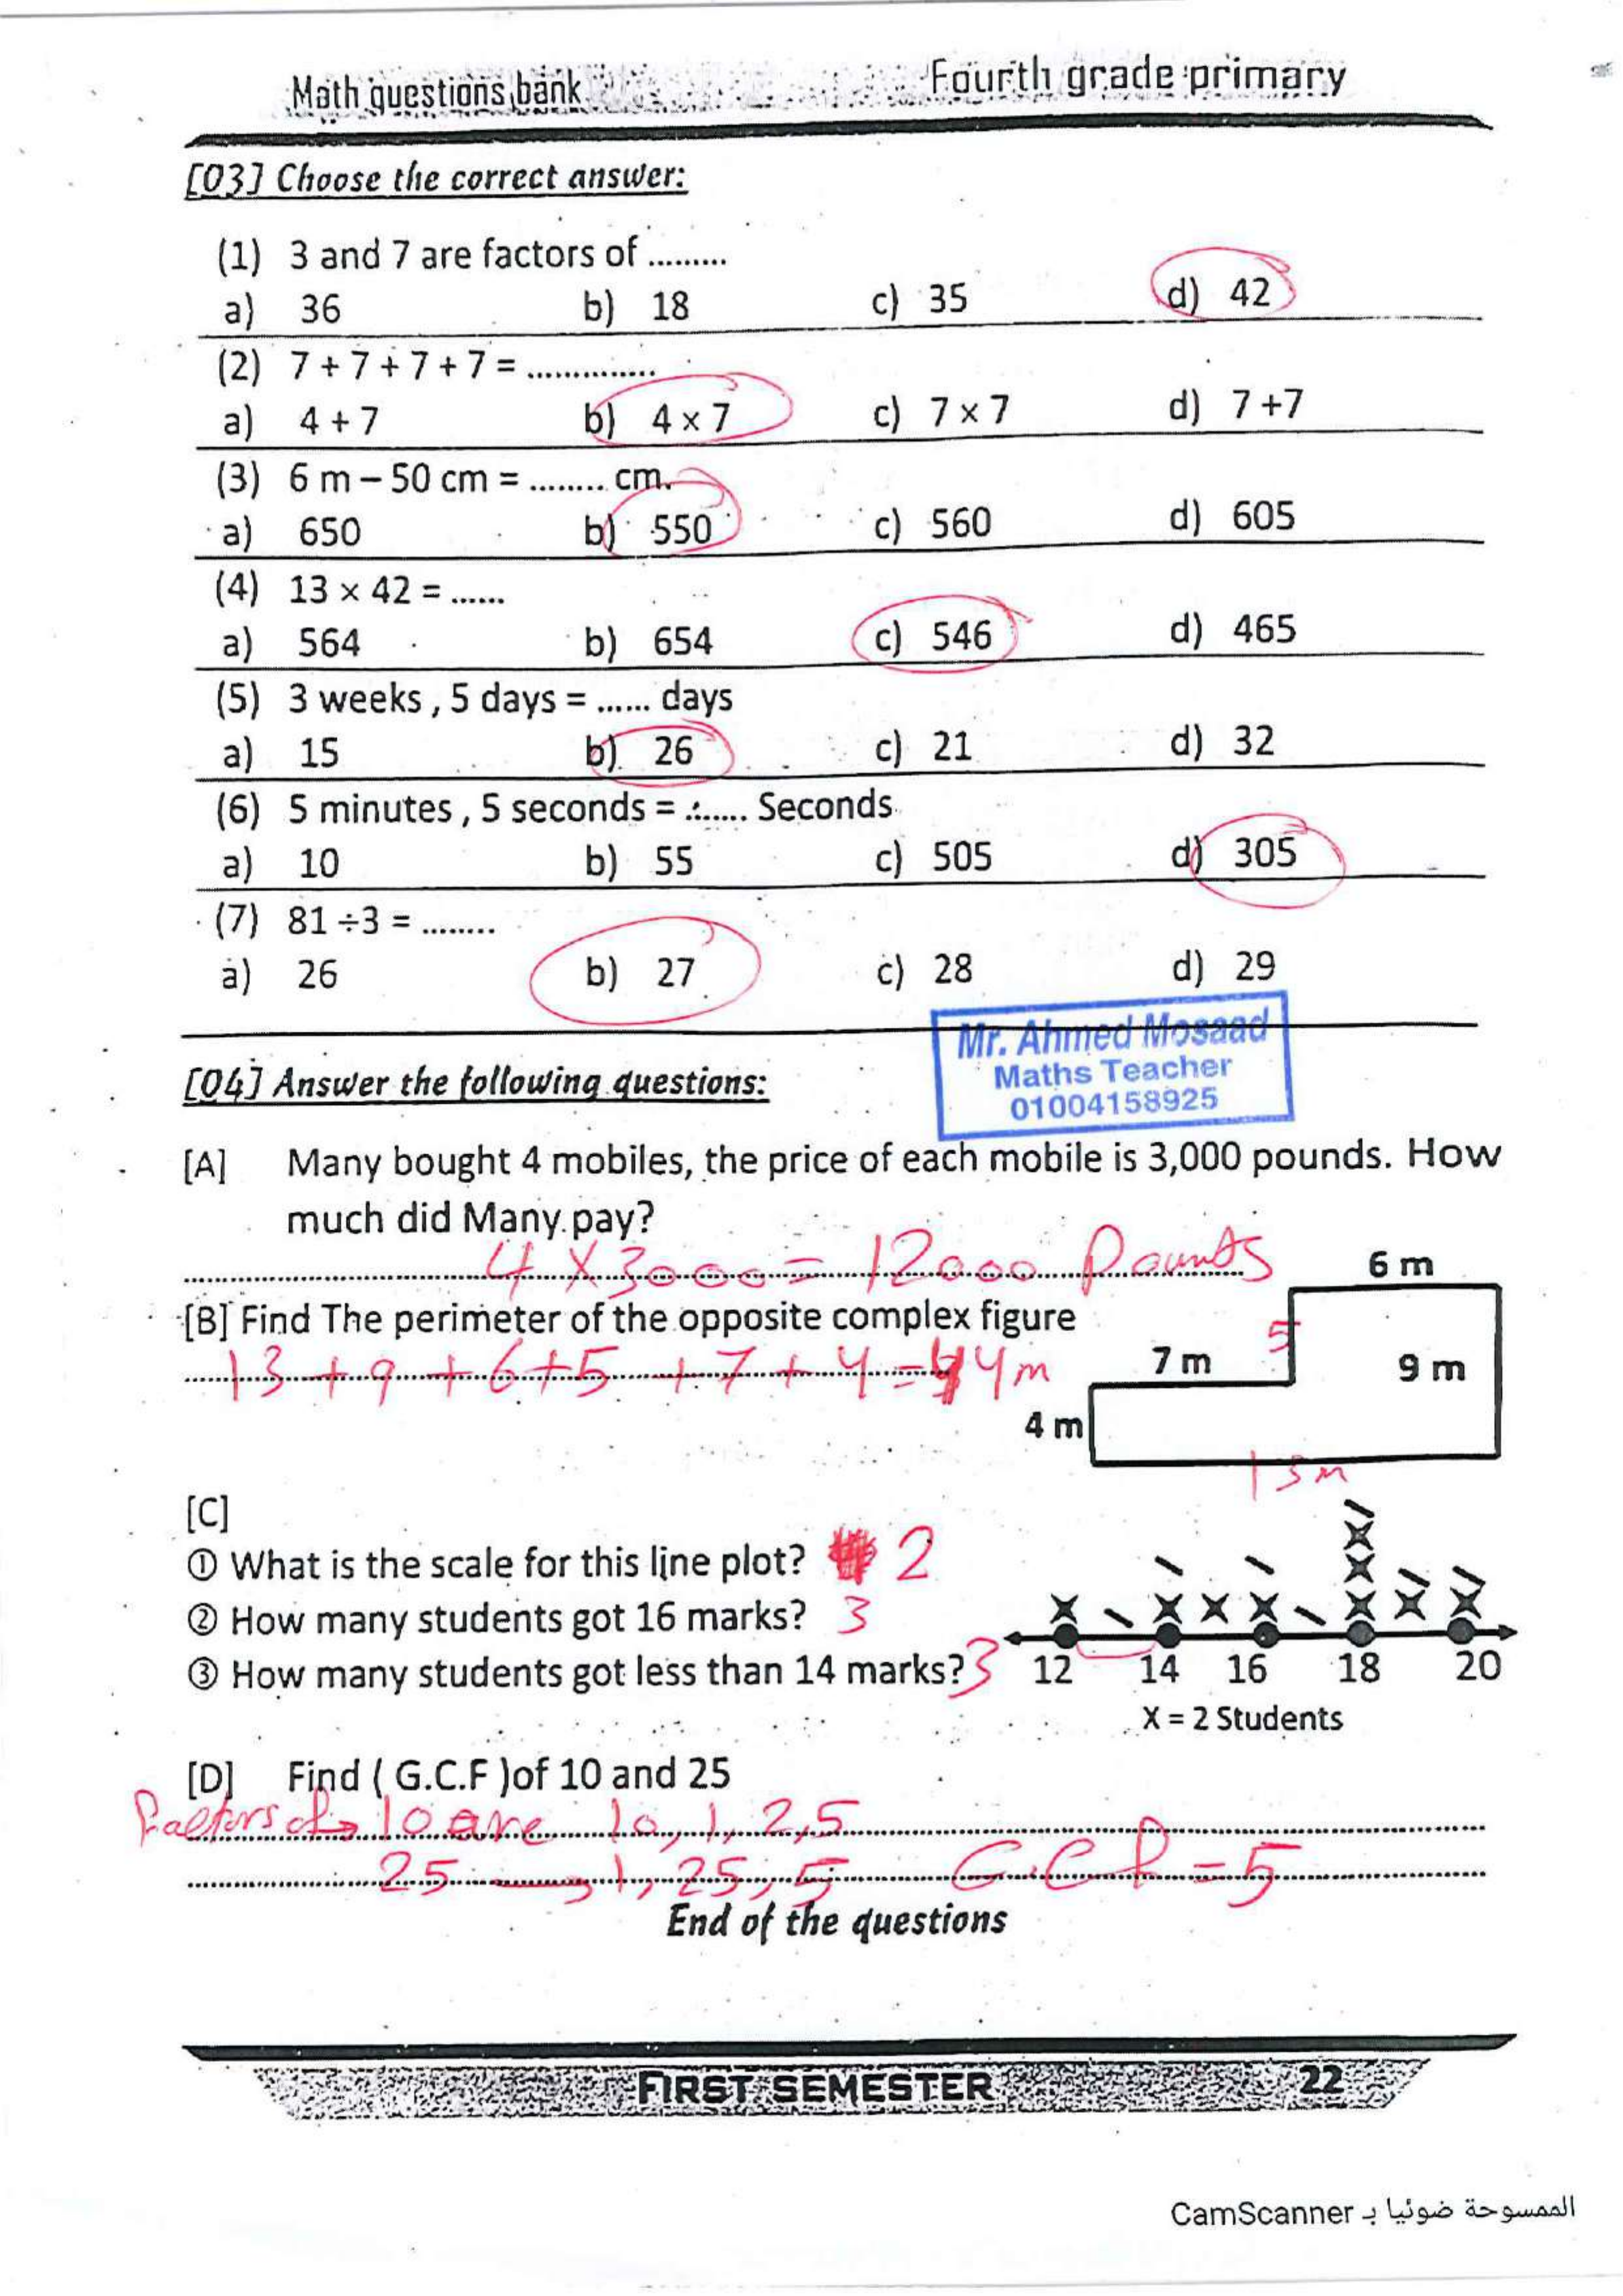 Math questions bank Fourth grade primary
[03] Choose the correct answer:
(1) 3 and 7 are factors of .........
a) 36 b) 18 c) 35 d) 42
(2) 7 + 7 + 7 + 7 = ..............
a) 4 + 7 b) 4 × 7 c) 7 × 7 d) 7 +7
(3) 6 m – 50 cm = ........ cm.
a) 650 b) 550 c) 560 d) 605
(4) 13 × 42 = ......
a) 564 b) 654 c) 546 d) 465
(5) 3 weeks , 5 days = ...... days
a) 15 b) 26 c) 21 d) 32
(6) 5 minutes , 5 seconds = ....... Seconds
a) 10 b) 55 c) 505 d) 305
(7) 81 ÷3 = ........
a) 26 b) 27 c) 28 d) 29
Mr. Ahmed Mosaad
Maths Teacher
01004158925
[04] Answer the following questions:
[A] Many bought 4 mobiles, the price of each mobile is 3,000 pounds. How
much did Many pay?
4 × 3000 = 12000 Pounds
6 m
[B] Find The perimeter of the opposite complex figure
5
13 + 9 + 6 + 5 + 7 + 4 = 44m
7 m 9 m
4 m
13m
[C]
① What is the scale for this line plot? 2
② How many students got 16 marks? 3
③ How many students got less than 14 marks? 3
12 14 16 18 20
X = 2 Students
[D] Find ( G.C.F )of 10 and 25
Factors of → 10 are 10, 1, 2, 5
25 → 1, 25, 5 G.C.F = 5
End of the questions
FIRST SEMESTER 22
الممسوحة ضوئيا بـ CamScanner